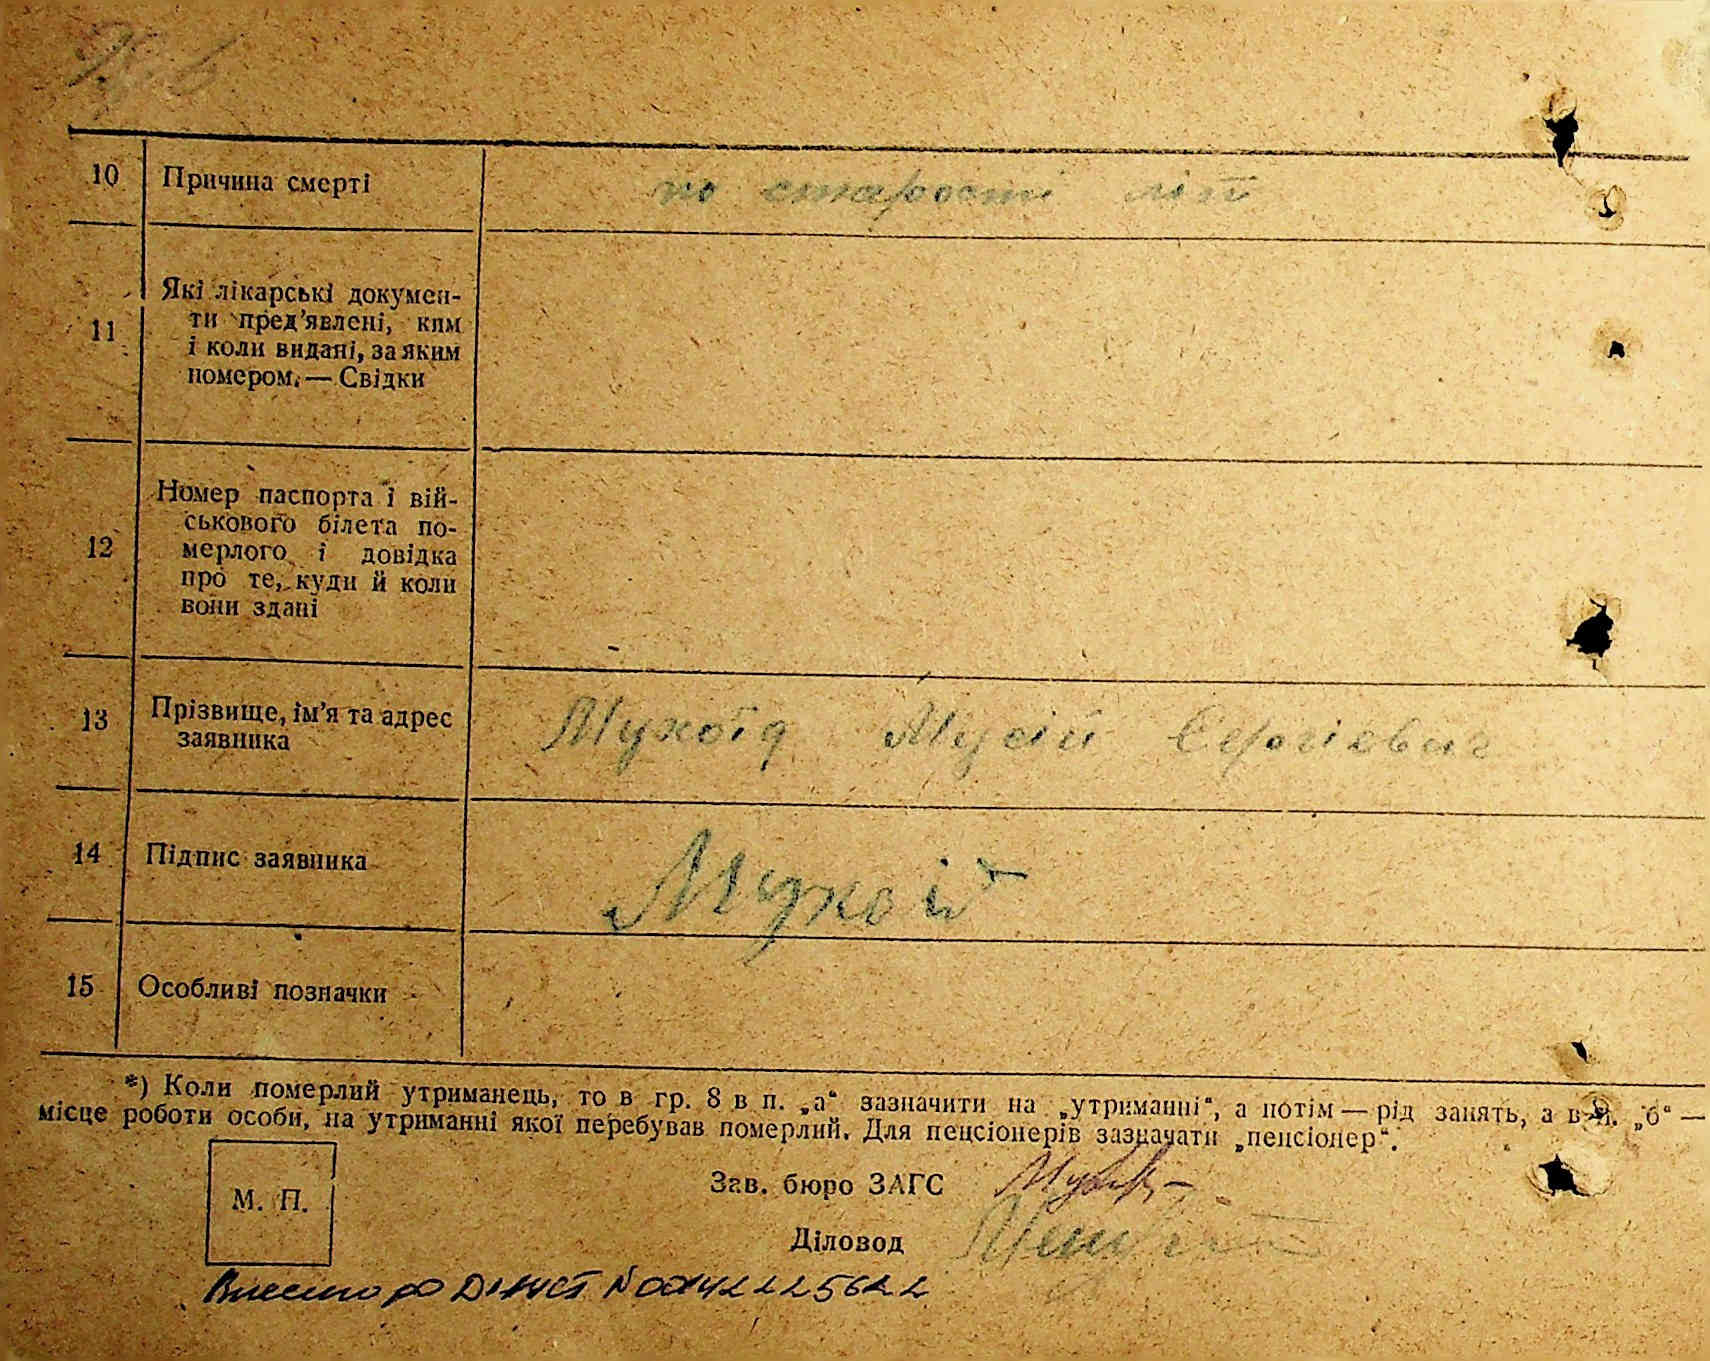 10 Причина смерті по старості літ
11 Які лікарські докумен-
ти пред'явлені, ким
і коли видані, за яким
номером. — Свідки
12 Номер паспорта і вій-
ськового білета по-
мерлого і довідка
про те, куди й коли
вони здані
13 Прізвище, ім'я та адрес
заявника
Мухоїд Мусій Сергієвич
14 Підпис заявника Мухоїд
15 Особливі позначки
*) Коли померлий утриманець, то в гр. 8 в п. „а“ зазначити на „утриманні“, а потім — рід занять, а в п. „б“ —
місце роботи особи, на утриманні якої перебував померлий. Для пенсіонерів зазначати „пенсіонер“.
М. П.
Зав. бюро ЗАГС
Діловод
Внесено до ДРАЦС №